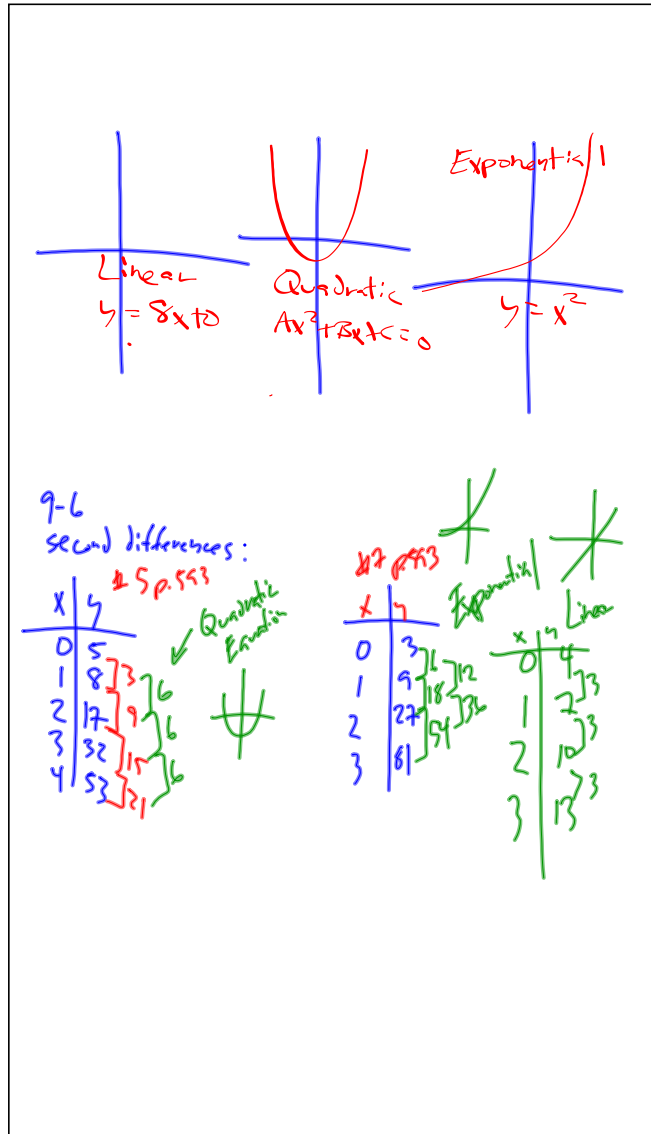 Linear
y = 8x+0
Quadratic
Ax²+Bx+C=0
Exponential
y = x²
9-6
second differences:
#5 p.593
x y
0 5
1 8
2 17
3 32
4 53
3
9
15
21
6
6
6
Quadratic
Equation
#7 p.593
x y
0 3
1 9
2 27
3 81
6
18
54
12
36
Exponential
Linear
x y
0 4
1 7
2 10
3 13
3
3
3